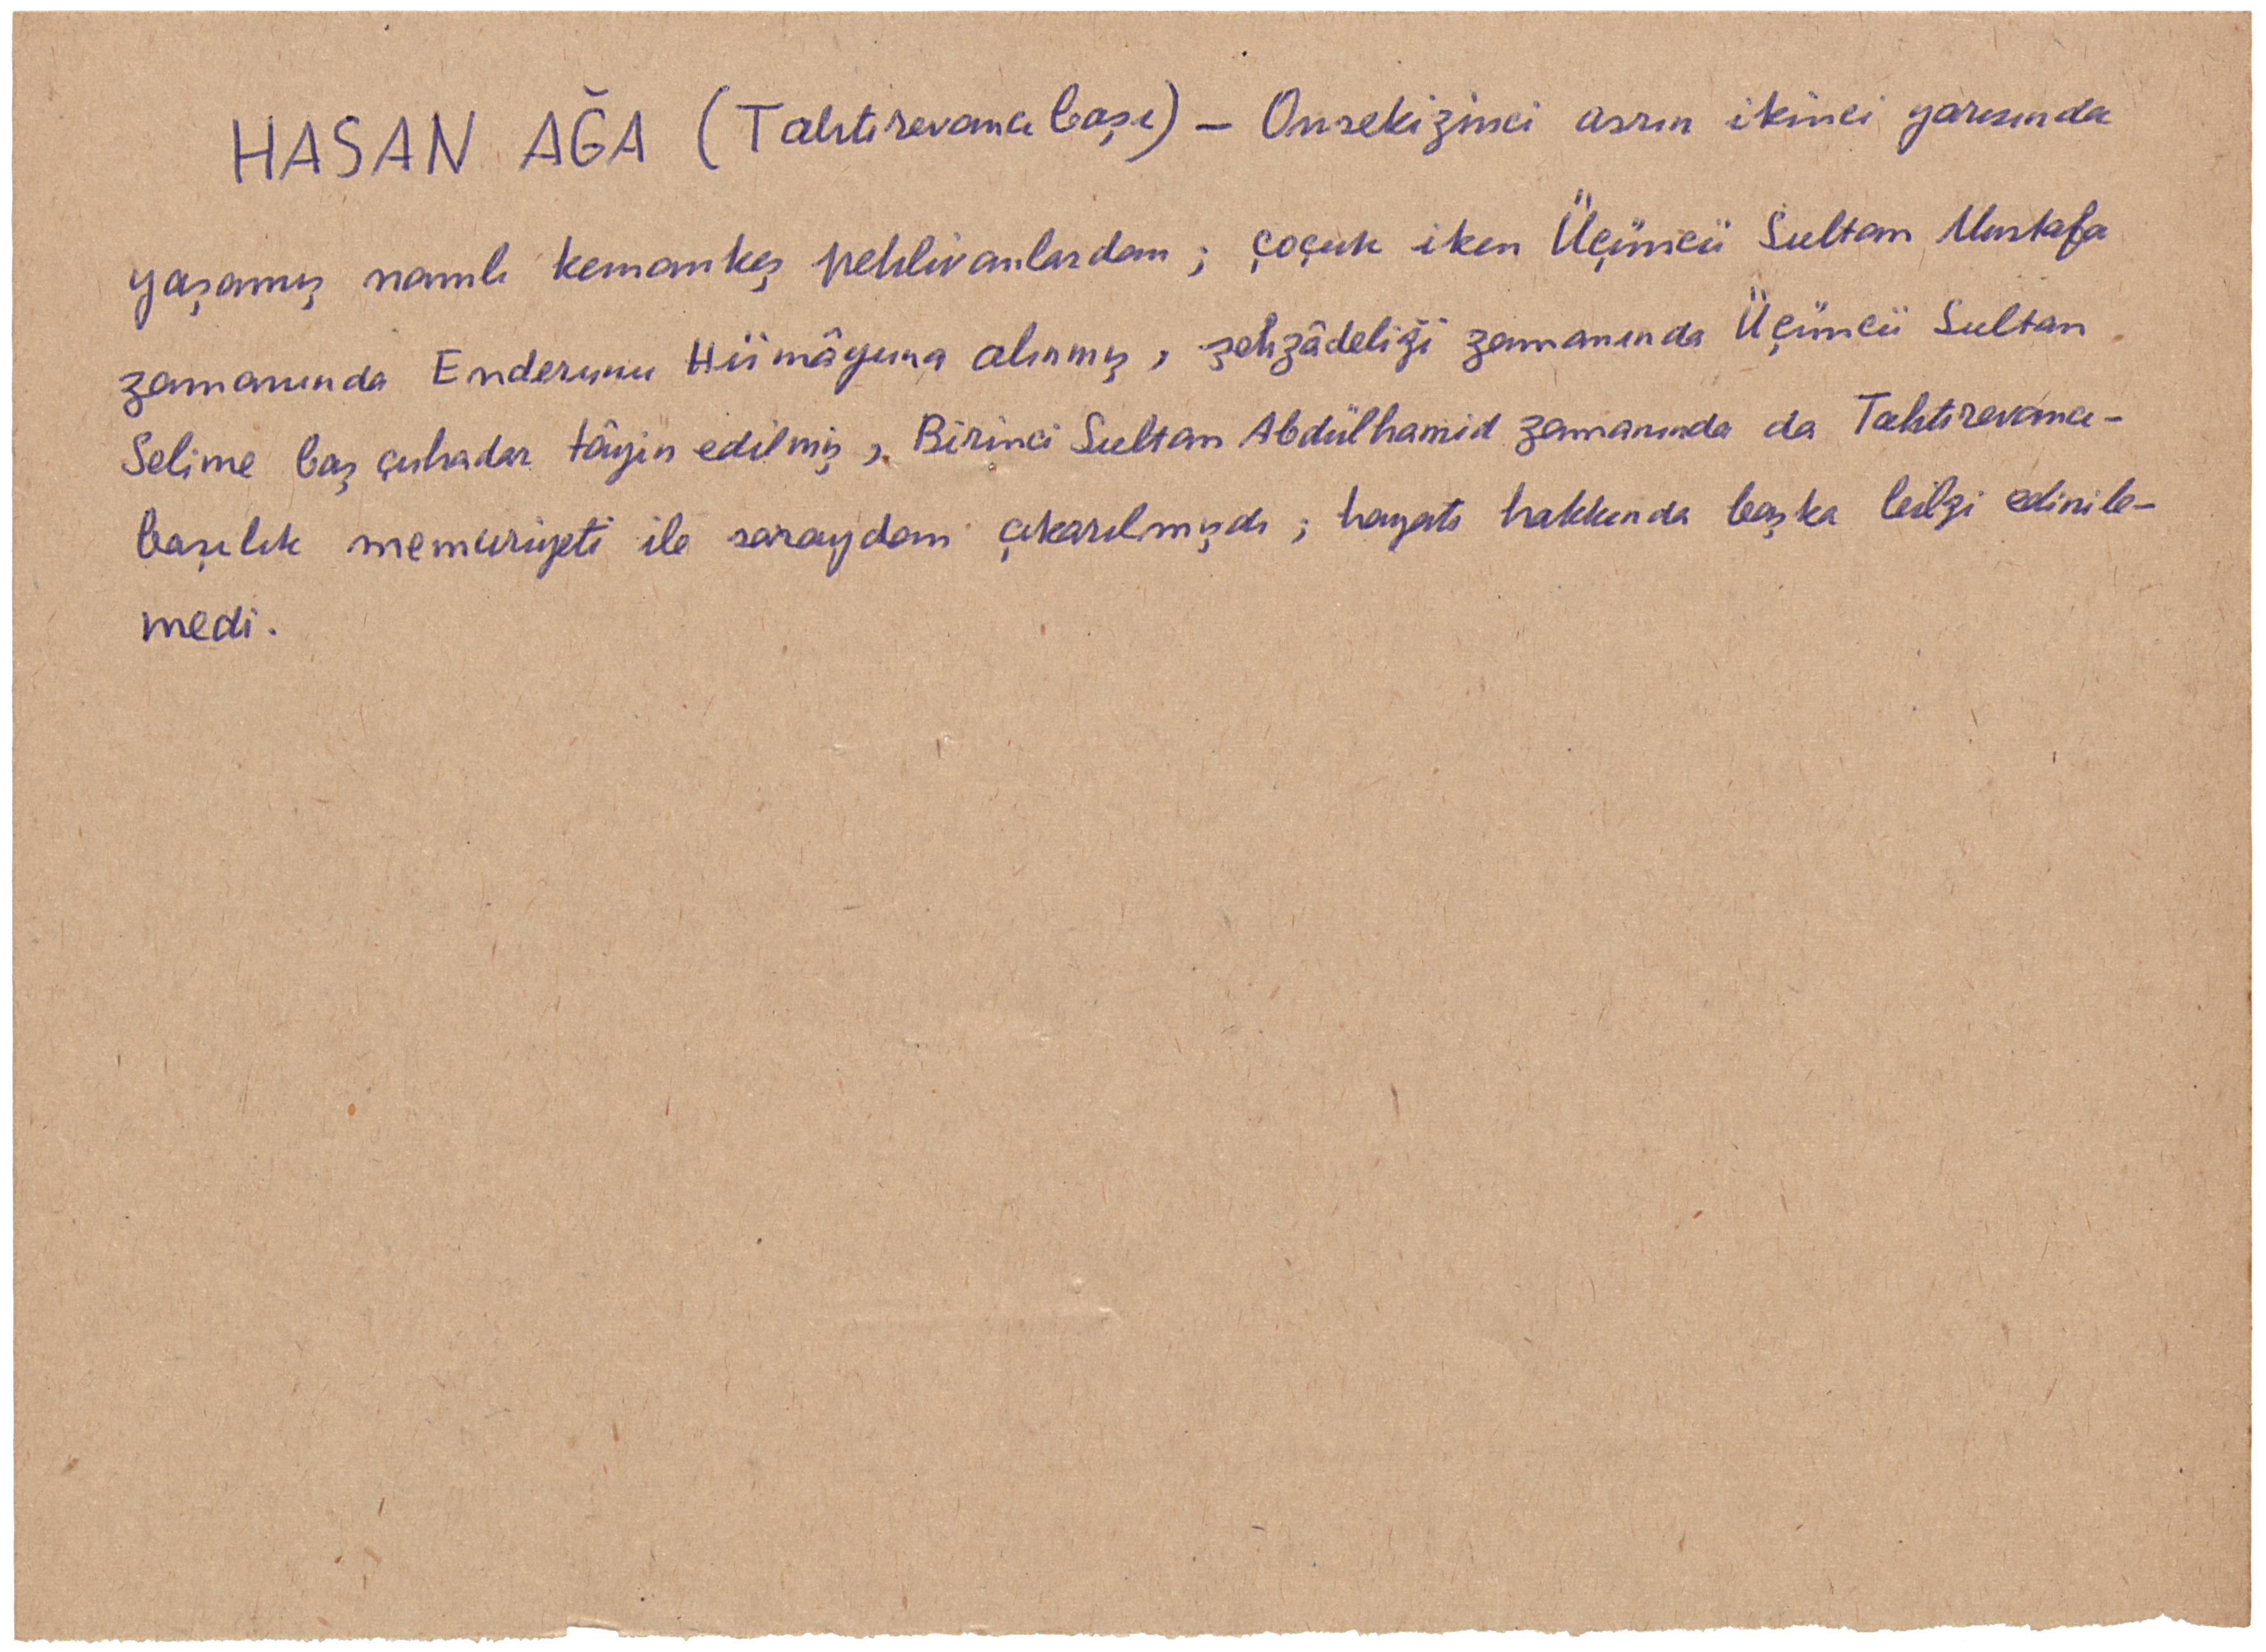 HASAN AĞA (Tahtırevancıbaşı) — Onsekizinci asrın ikinci yarısında
yaşamış namlı kemankeş pehlivanlardan; çoçuk iken Üçüncü Sultan Mustafa
zamanında Enderunu Hümâyuna alınmış, şehzâdeliği zamanında Üçüncü Sultan
Selime baş çuhadar tâyin edilmiş, Birinci Sultan Abdülhamid zamanında da Tahtırevancı-
başılık memuriyeti ile saraydan çıkarılmışdı; hayatı hakkında başka bilgi edinile-
medi.